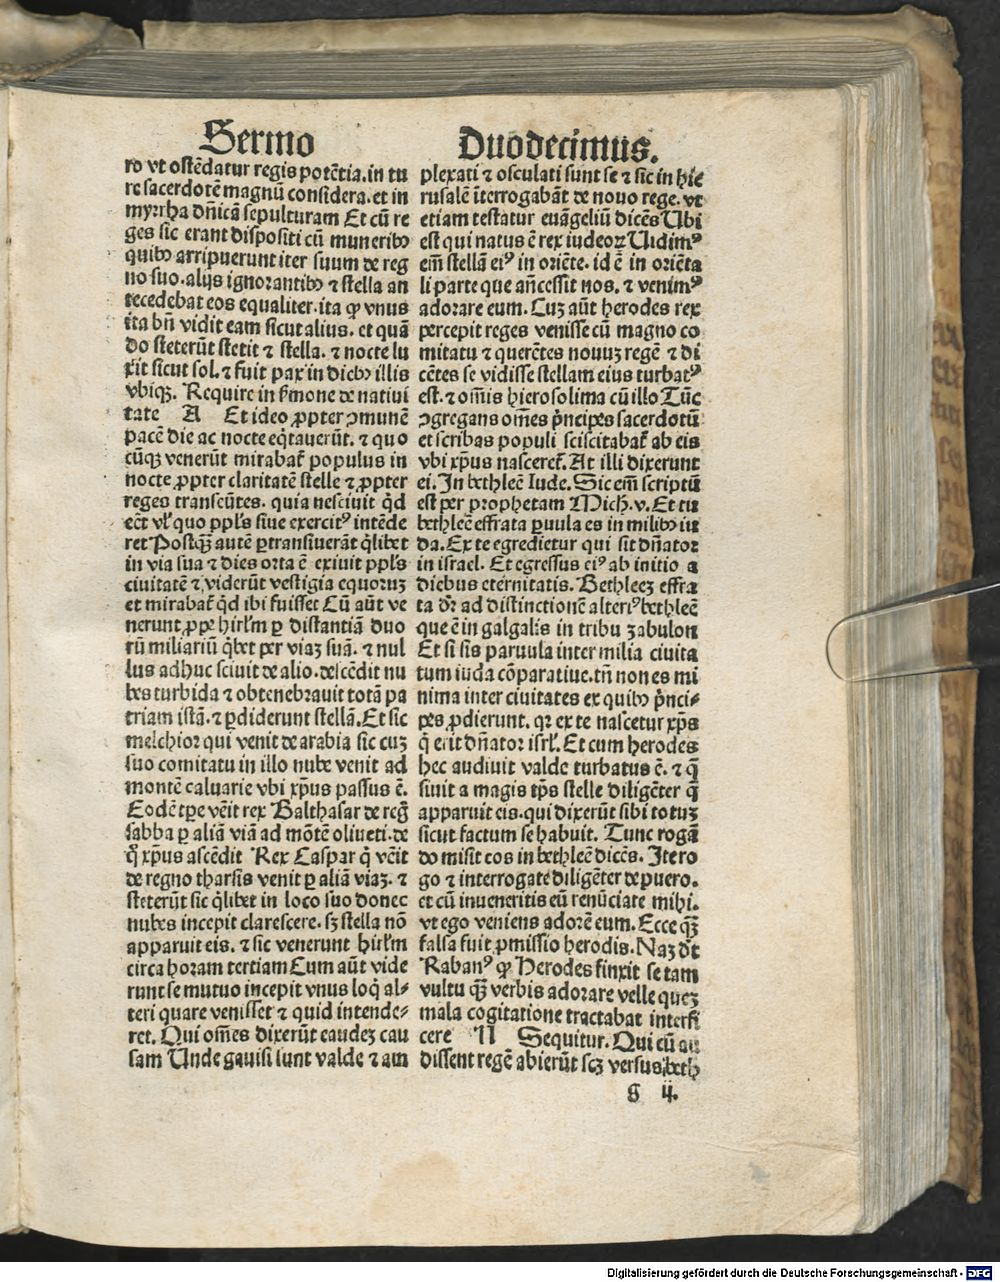 Sermo
ro vt ostēdatur regis potētia. in tu
re sacerdotē magnū considera. et in
myrrha dn̄icā sepulturam Et cū re
ges sic erant dispositi cū muneribꝰ
quibꝰ arripuerunt iter suum de reg
no suo. alijs ignorantibꝰ ⁊ stella an
tecedebat eos equaliter. ita ꝙ vnus
ita bn̄ vidit eam sicut alius. et quā
do steterūt stetit ⁊ stella. ⁊ nocte lu
xit sicut sol. ⁊ fuit pax in diebꝰ illis
vbiqꝫ. Require in ẜmone de natiui
tate A Et ideo ꝓpter ꝯmunē
pacē die ac nocte eq̇tauerūt. ⁊ quo
cūqꝫ venerūt mirabat᷑ populus in
nocte ꝓpter claritatē stelle ⁊ ꝓpter
reges transeūtes. quia nesciuit q̇d
eēt vl̓ quo ppl̓s siue exercitꝰ intēde
ret Postqꝫ̄ autē ꝑtransiuerāt q̇libet
in via sua ⁊ dies orta ē exiuit ppl̓s
ciuitatē ⁊ viderūt vestigia equoruꝫ
et mirabat᷑ q̇d ibi fuisset Cū aūt ve
nerunt ꝓpe hirl̓m ꝑ distantiā duo
rū miliariū q̇bet per viaꝫ suā. ⁊ nul
lus adhuc sciuit de alio. descēdit nu
bes turbida ⁊ obtenebrauit totā pa
triam istā. ⁊ ꝑdiderunt stellā. Et sic
melchior qui venit de arabia sic cuꝫ
suo comitatu in illo nube venit ad
montē caluarie vbi xp̄us passus ē.
Eodē tꝑe vēit rex Balthasar de reḡ
sabba ꝑ aliā viā ad mōtē oliueti. de
q̊ xp̄us ascēdit Rex Caspar q̇ vēit
de regno tharsis venit ꝑ aliā viaꝫ. ⁊
steterūt sic q̇libet in loco suo donec
nubes incepit clarescere. sꝫ stella nō
apparuit eis. ⁊ sic venerunt hirl̓m
circa horam tertiam Cum aūt vide
runt se mutuo incepit vnus loq̇ al⸗
teri quare venisset ⁊ quid intende⸗
ret. Qui om̄es dixerūt eandeꝫ cau
sam Unde gauisi sunt valde ⁊ am
Duodecimus.
plexati ⁊ osculati sunt se ⁊ sic in hie
rusalē īterrogabāt de nouo rege. vt
etiam testatur euāgeliū dicēs Ubi
est qui natus ē rex iudeoꝝ Uidimꝰ
em̄ stellā eiꝰ in oriēte. id ē in oriēta
li parte que an̄cessit nos. ⁊ venimꝰ
adorare eum. Cuꝫ aūt herodes rex
percepit reges venisse cū magno co
mitatu ⁊ querētes nouuꝫ regē ⁊ di
cētes se vidisse stellam eius turbatꝰ
est. ⁊ om̄is hierosolima cū illo Tūc
ꝯgregans om̄es p̄ncipes sacerdotū
et scribas populi sciscitabat᷑ ab eis
vbi xp̄us nasceret᷑. At illi dixerunt
ei. In bethleē Iude. Sic em̄ scriptū
est per prophetam Mich. v. Et tu
bethleē effrata ꝑuula es in milibꝰ iu
da. Ex te egredietur qui sit dn̄ator
in israel. Et egressus eiꝰ ab initio a
diebus eternitatis. Bethleeꝫ effra
ta dr̄ ad distinctionē alteriꝰ bethleē
que ē in galgalis in tribu zabulon
Et si sis paruula inter milia ciuita
tum iuda cōparatiue. tn̄ non es mi
nima inter ciuitates ex quibꝰ p̄nci⸗
pes ꝓdierunt. qꝛ ex te nascetur xp̄s
q̇ erit dn̄ator isrl̓. Et cum herodes
hec audiuit valde turbatus ē. ⁊ q̄
siuit a magis tp̄s stelle diligēter q̄
apparuit eis. qui dixerūt sibi totuꝫ
sicut factum se habuit. Tunc rogā
do misit eos in bethleē dicēs. Ite ro
go ⁊ interrogate diligēter de puero.
et cū inueneritis eū renūciate mihi.
vt ego veniens adorē eum. Ecce qꝫ̄
falsa fuit ꝓmissio herodis. Naꝫ dt̄
Rabanꝰ ꝙ Herodes finxit se tam
vultu qꝫ̄ verbis adorare velle queꝫ
mala cogitatione tractabat interfi
cere N Sequitur. Qui cū au
dissent regē abierūt scꝫ versus beth
g ij.
Digitalisierung gefördert durch die Deutsche Forschungsgemeinschaft - DFG